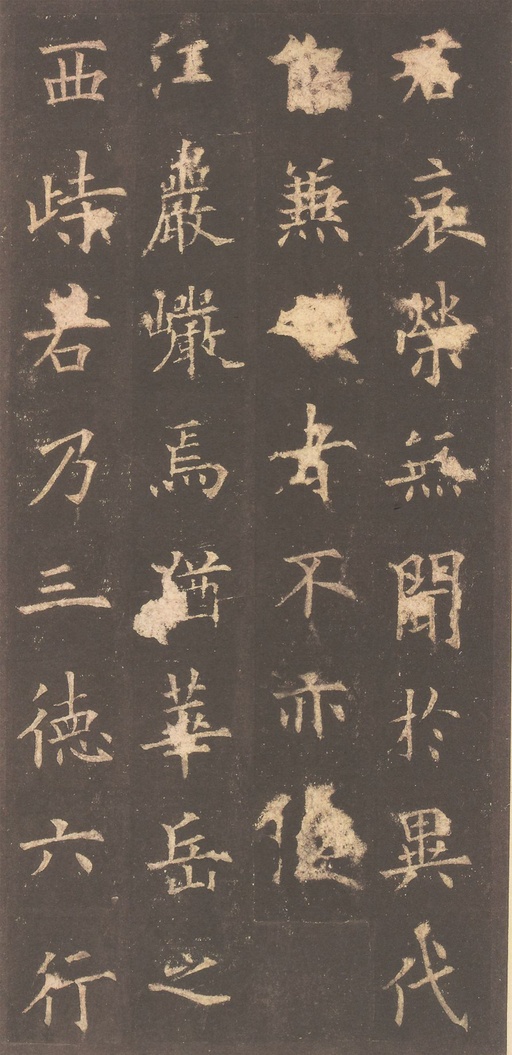 哀榮無聞於異代
兼者不亦
江巖巖焉猶華岳之
西峙若乃三德六行